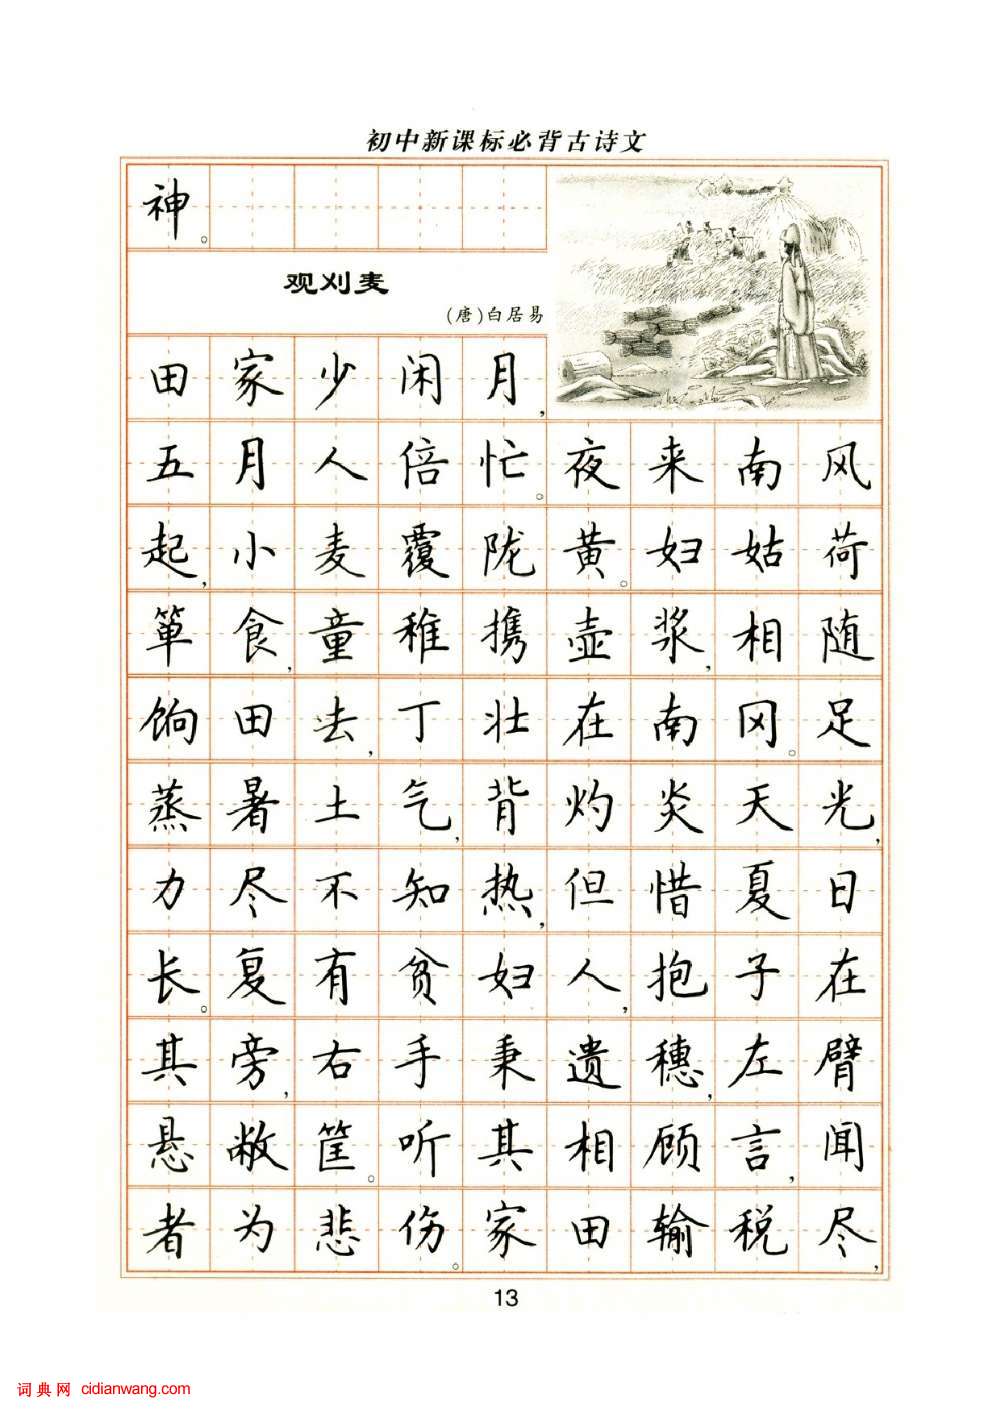 初中新课标必背古诗文
神。
观刈麦
(唐)白居易
田家少闲月，
五月人倍忙。夜来南风
起，小麦覆陇黄。妇姑荷
箪食，童稚携壶浆，相随
饷田去，丁壮在南冈。足
蒸暑土气，背灼炎天光，
力尽不知热，但惜夏日
长。复有贫妇人，抱子在
其旁，右手秉遗穗，左臂
悬敝筐。听其相顾言，闻
者为悲伤。家田输税尽，
13
词典网 cidianwang.com